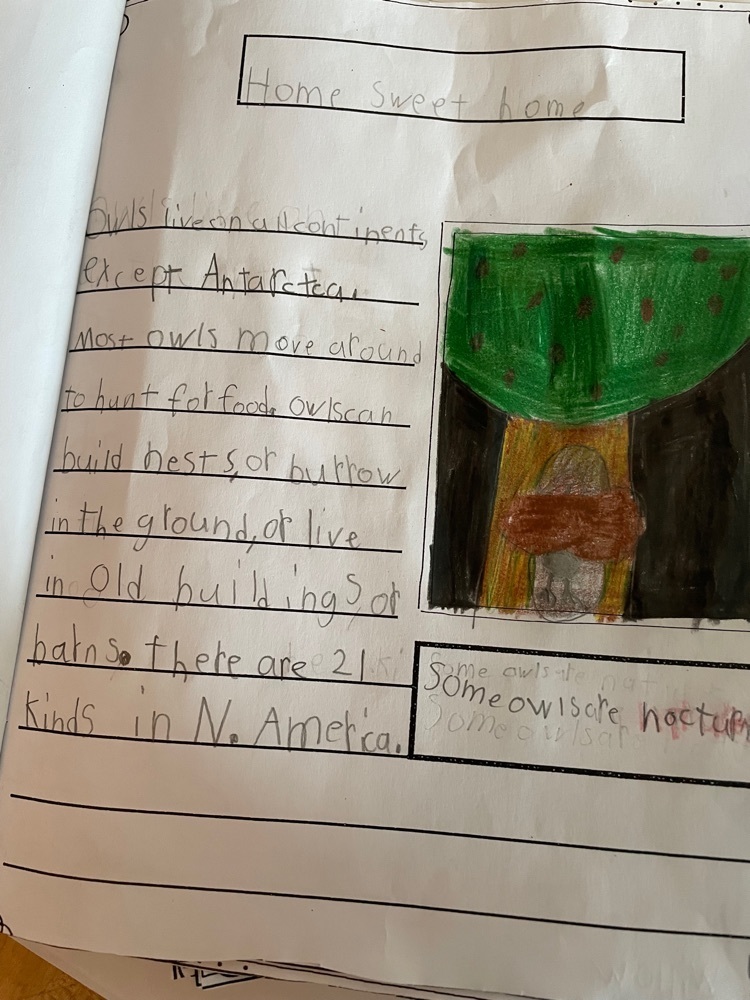 Home Sweet home
Owls live on all continents,
except Antarctca.
Most owls move around
to hunt for food. owls can
build nests, or burrow
in the ground, or live
in old buildings, or
barns. there are 21
kinds in N. America.
Some owls are